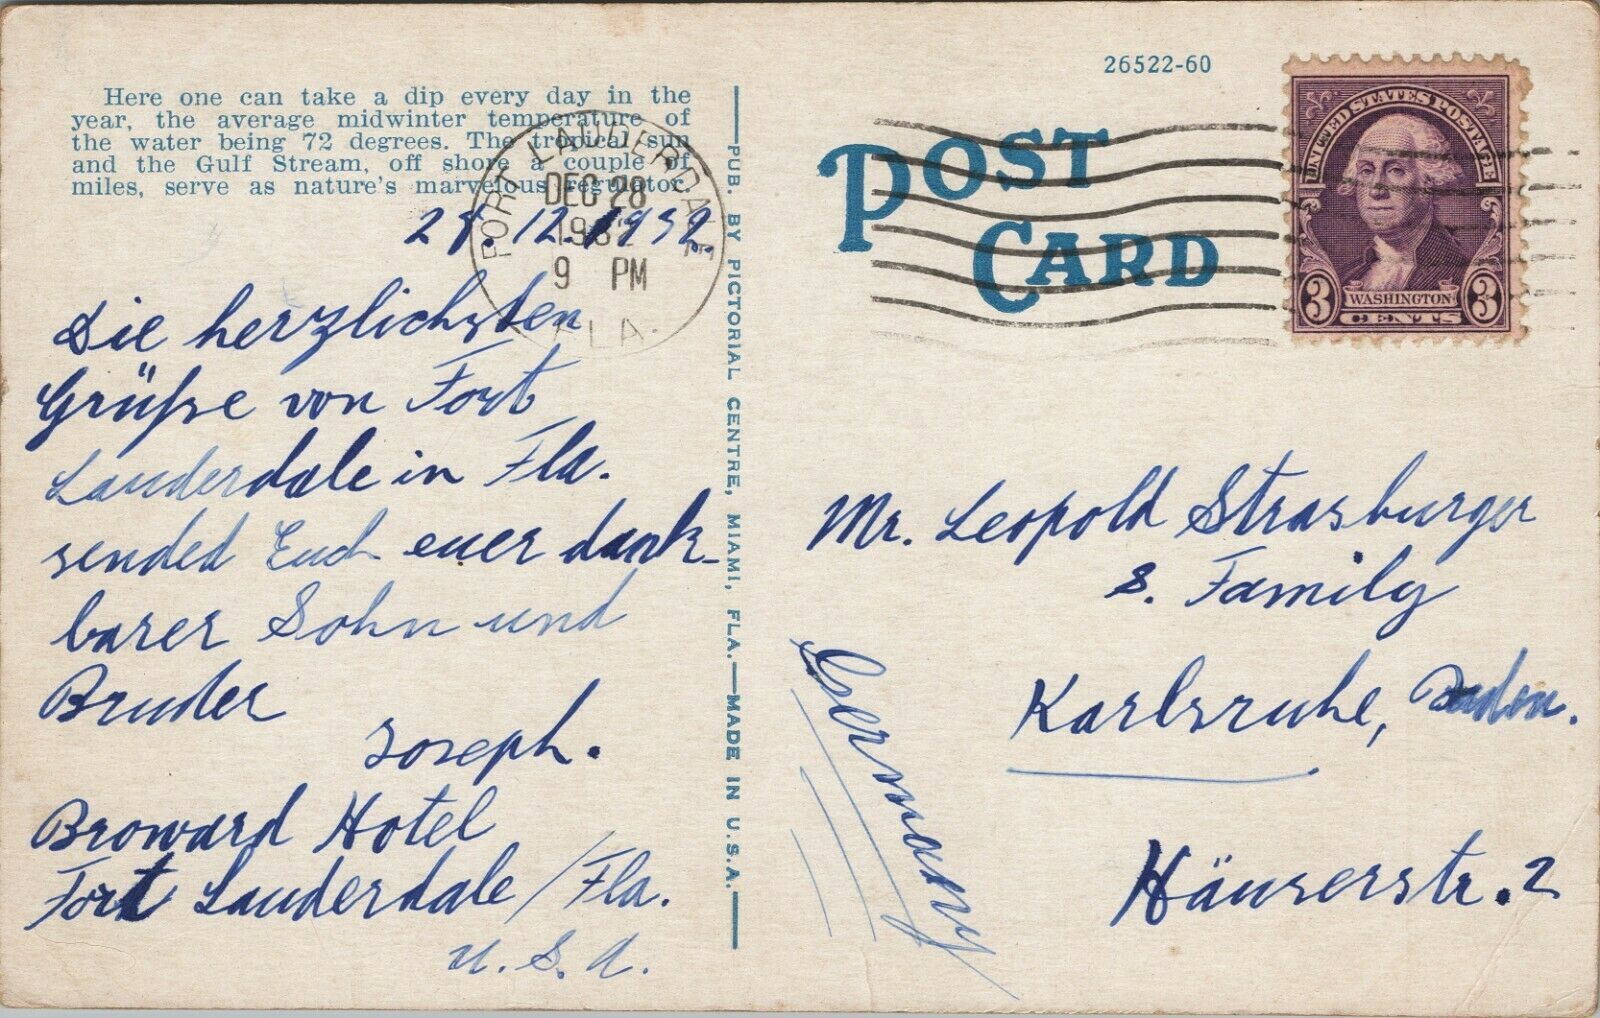 Here one can take a dip every day in the
year, the average midwinter temperature of
the water being 72 degrees. The tropical sun
and the Gulf Stream, off shore a couple of
miles, serve as nature's marvelous regulator.
28.12.1932
Die herzlichsten
Grüße von Fort
Lauderdale in Fla.
sended Euch euer dank-
barer Sohn und
Bruder
Joseph.
Broward Hotel
Fort Lauderdale/Fla.
U.S.A.
FORT LAUDERDALE
DEC 28
1932
9 PM
FLA.
PUB. BY PICTORIAL CENTRE, MIAMI, FLA.—MADE IN U.S.A.
26522-60
POST CARD
UNITED STATES POSTAGE
3 WASHINGTON 3
CENTS
Mr. Leopold Strasburger
&. Family
Karlsruhe, Baden.
Häuserstr. 2
Germany